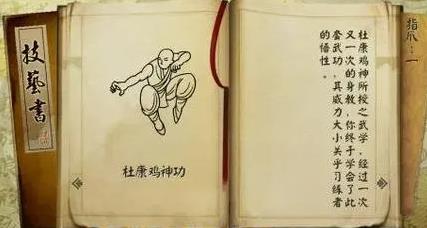 技藝書
杜康鸡神功
杜康鸡神所授之武学，经过一次
又一次的身教，你终于学会了此
套武功，其威力大小关乎习练者
的悟性。
指爪：一